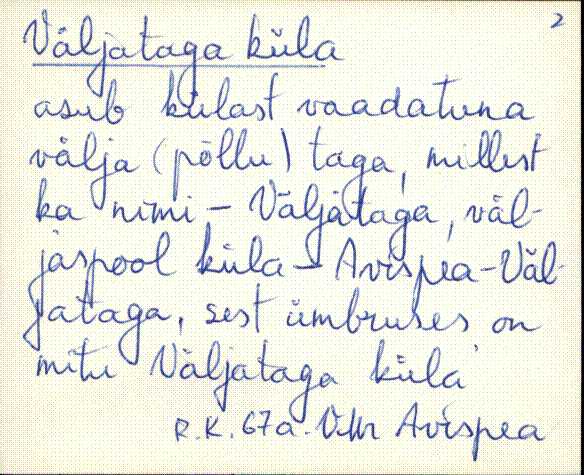 2
Väljataga küla
asub külast vaadatuna
välja (põllu) taga, millest
ka nimi – Väljataga, väl-
jaspool küla – Avispea-Väl-
jataga, sest ümbruses on
mitu Väljataga küla
R.K. 67a. VMr Avispea